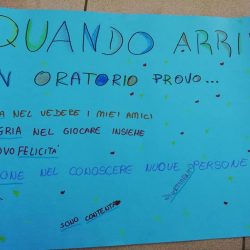 QUANDO ARRI
N ORATORIO PROVO...
A NEL VEDERE I MIEI AMICI
GRIA NEL GIOCARE INSIEME
OVO FELICITÀ
ONE NEL CONOSCERE NUOVE PERSONE
SONO CONTENTA